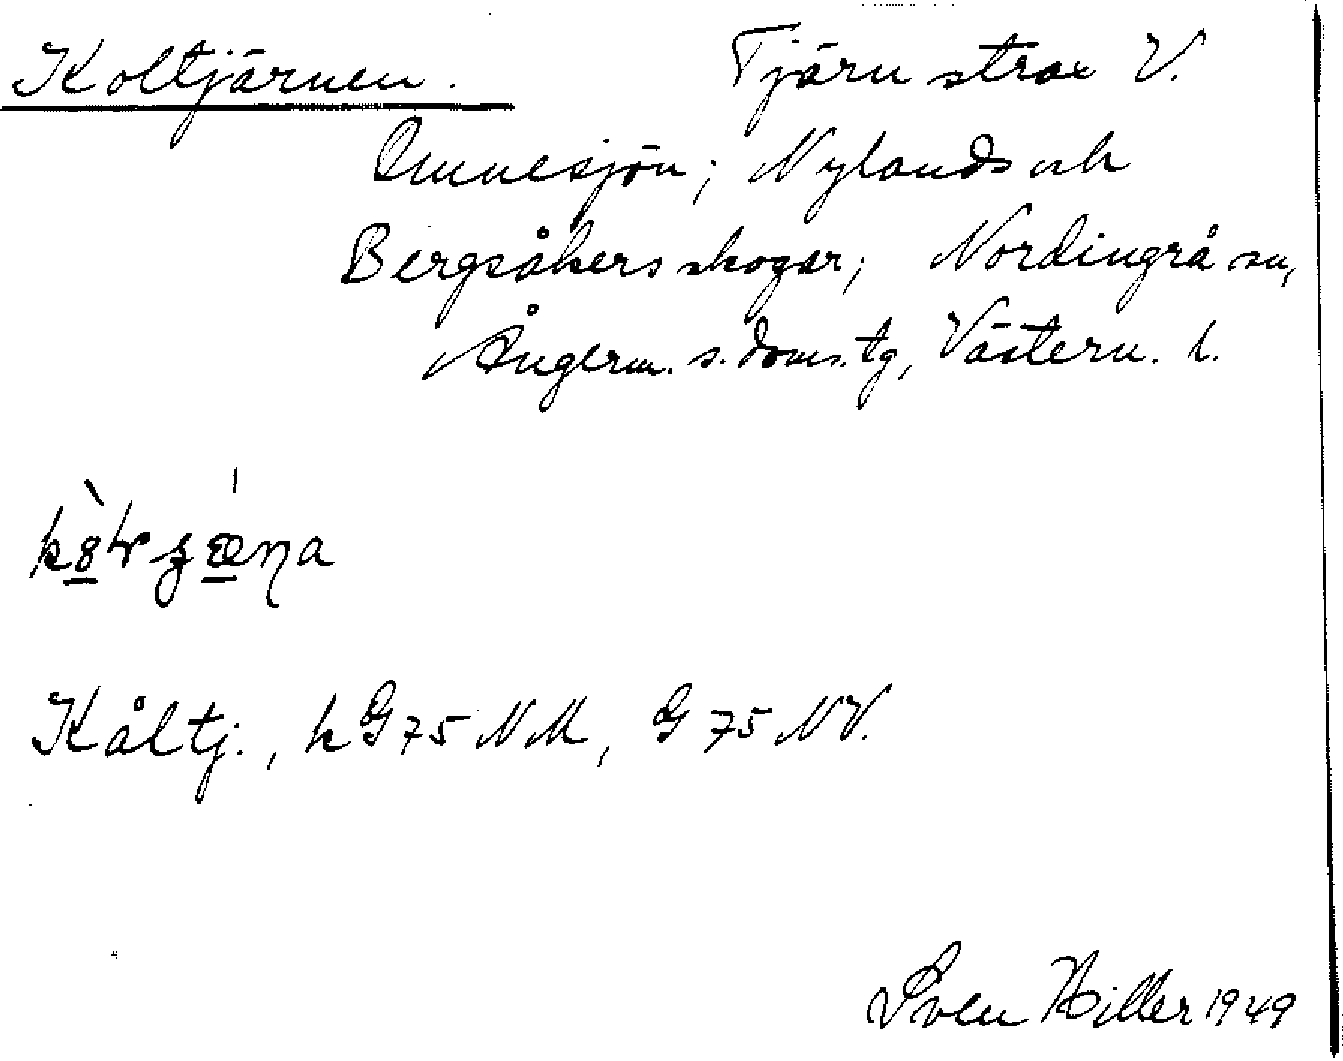 Koltjärnen. Tjärn strax V.
Omnesjön; Nylands och
Bergsåkers skogar; Nordingrå sn,
Ångerm. s. doms. tg, Västern. l.
Kåltj., k G 75 NM, G 75 NV.
Sven Hiller 1949